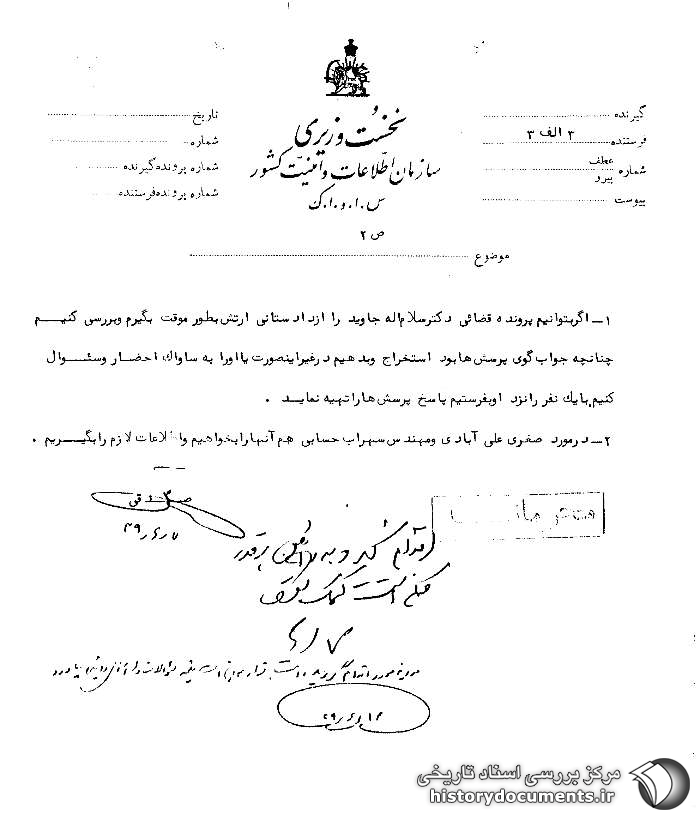 نخست وزیری
سازمان اطلاعات و امنیت کشور
س.ا.و.ا.ک
گیرنده
فرستنده ۳ الف ۳
شماره عطف پیرو
پیوست
تاریخ
شماره
شماره پرونده گیرنده
شماره پرونده فرستنده
ص ۲
موضوع
۱ـ اگر بتوانیم پرونده قضائی دکتر سلام‌اله جاوید را از دادستانی ارتش بطور موقت بگیرم و بررسی کنیم
چنانچه جواب گوی پرسش ها بود استخراج و بدهیم در غیر اینصورت یا او را به ساواک احضار و سئوال
کنیم یا یک نفر را نزد او بفرستیم پاسخ پرسش ها را تهیه نماید .
۲ـ در مورد صغری علی آبادی و مهندس سهراب حسابی هم آنها را بخواهیم و اطلاعات لازم را بگیریم .
صدقی
۴۹/۶/۷
محرمانه
اقدام شود و به
ممکن است کمک
۶/۷
۴۹/۶/۱۶
مرکز بررسی اسناد تاریخی
historydocuments.ir